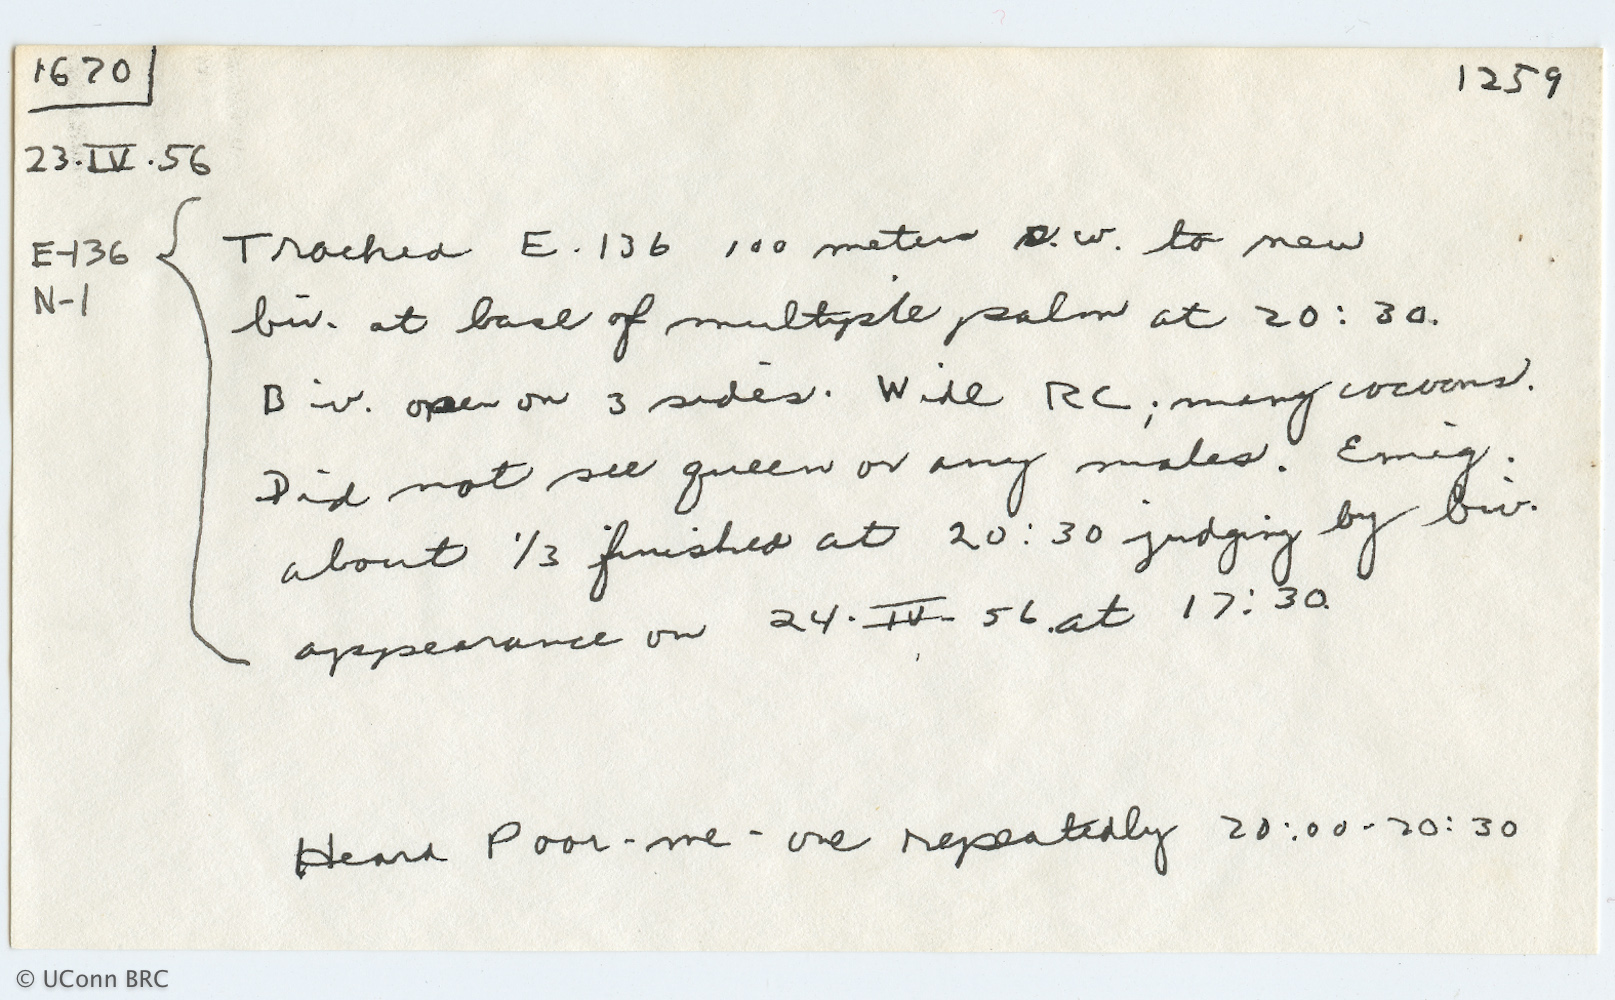 1670
1259
23.IV.56
E-136
N-1
Tracked E.136 100 meters S.W. to new
biv. at base of multiple palm at 20:30.
Biv. open on 3 sides. Wide RC; many cocoons.
Did not see queen or any males. Emig.
about 1/3 finished at 20:30 judging by biv.
appearance on 24.IV.56 at 17:30.
Heard Poor-me-one repeatedly 20:00-20:30
© UConn BRC